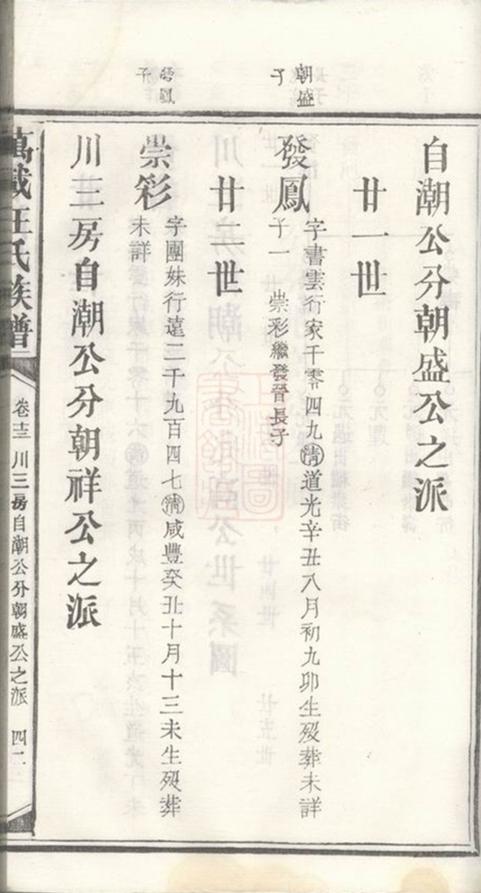 自潮公分朝盛公之派
廿一世
朝盛子
發鳳 字書雲行家千零四九清道光辛丑八月初九卯生歿葬未詳
子一 崇彩繼發晉長子
廿二世
發鳳子
崇彩 字團妹行遠二千九百四七清咸豐癸丑十月十三未生歿葬
未詳
川三房自潮公分朝祥公之派
萬載王氏族譜 卷十三 川三房自潮公分朝盛公之派 四二